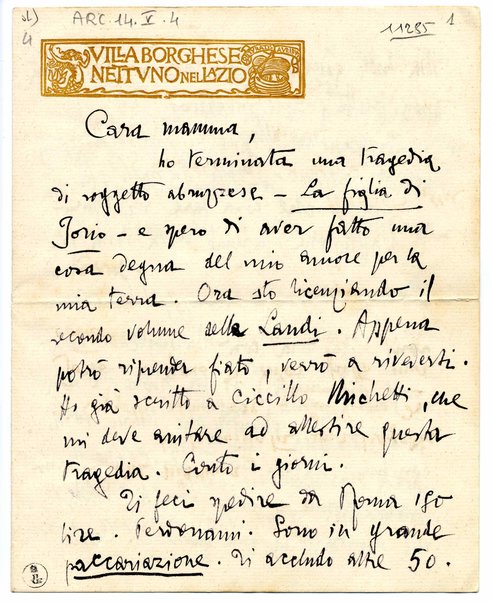 ARC. 14. V. 4
4
11285
1
VILLA BORGHESE
NETTVNO NEL LAZIO
Cara mamma,
ho terminata una tragedia
di soggetto abruzzese – La figlia di
Jorio – e spero di aver fatto una
cosa degna del mio amore per la
mia terra. Ora sto licenziando il
secondo volume delle Laudi. Appena
potrò riprender fiato, verrò a rivederti.
Ho già scritto a Ciccillo Michetti, che
mi deve aiutare ad allestire questa
tragedia. Conto i giorni.
Ti feci spedire da Roma 150
lire. Perdonami. Sono in grande
paccariazione. Ti accludo altre 50.